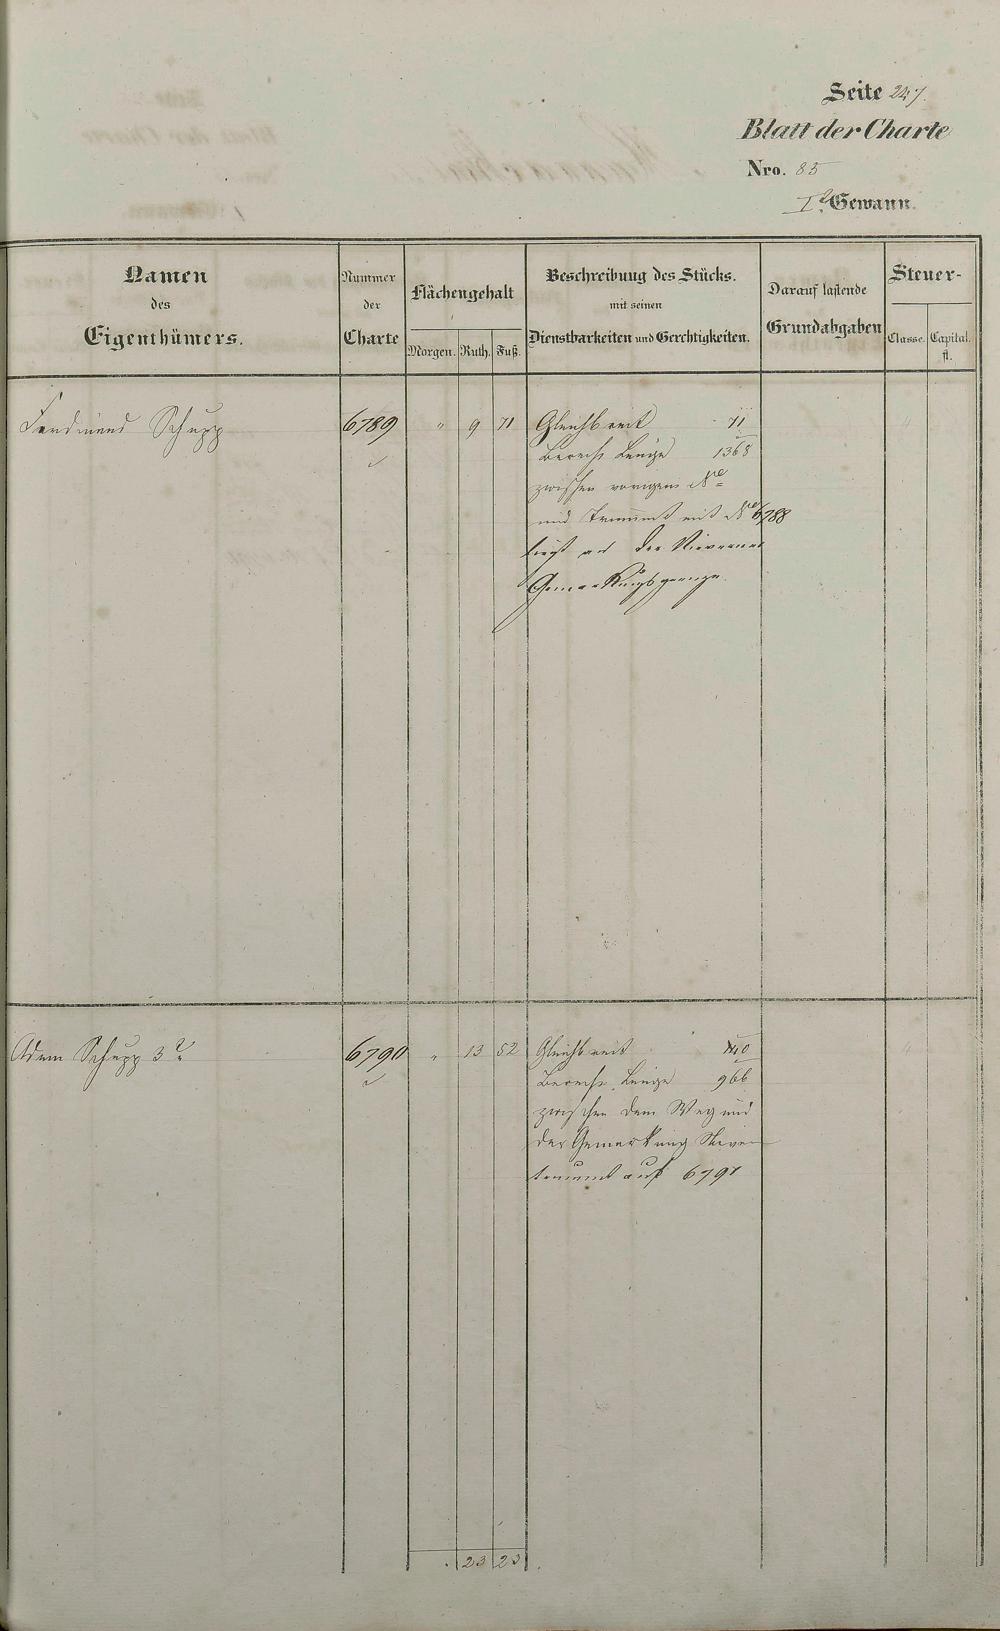 Seite 247.
Blatt der Charte
Nro. 85
I.te Gewann.
Namen
des
Eigenthümers.
Nummer
der
Charte
Flächengehalt
Morgen. Ruth. Fuß.
Beschreibung des Stücks.
mit seinen
Dienstbarkeiten und Gerechtigkeiten.
Darauf lastende
Grundabgaben
Steuer-
Classe. Capital.
fl.
Ferdinand Schupp 6789 " 9 71 Gleichbreit 71
Berech. Länge 1368
zwischen vorigem Nro
und trümmt mit Nro 6788
liegt an der
Gemarkungsgrenze.
Adam Schupp 3r 6790 " 13 52 Gleichbreit 140
Berech. Länge 966
zwischen dem Weg und
der Gemarkung
trümmt auf 6791
23 23